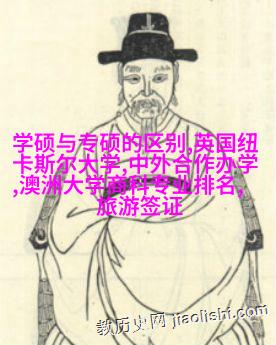 学硕与专硕的区别,英国纽
卡斯尔大学,中外合作办学
,澳洲大学商科专业排名,
旅游签证
教历史网 jiaolishi.com